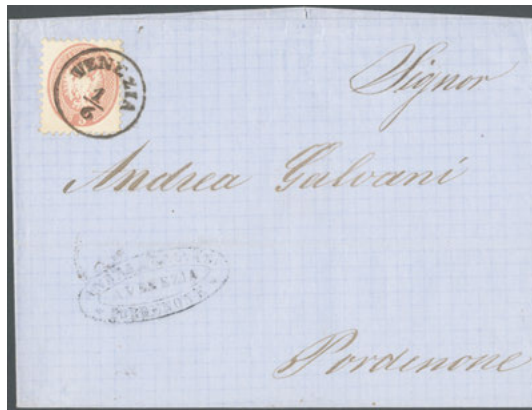 VENEZIA
1/6
Signor
Andrea Galvani
VENEZIA
Pordenone